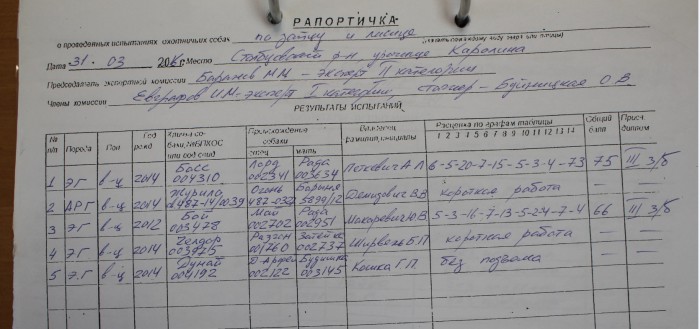 РАПОРТИЧКА
о проведенных испытаниях охотничьих собак по зайцу и лисице
(указать по какому виду зверя или птицы)
Дата 31. 03 Место Столбцовский р-н, урочище Каролина
Председатель экспертной комиссии Баранев Н.Н. - эксперт II категории
Члены комиссии И.М-эксперт I категории, стажер - Буйницкая О.В
РЕЗУЛЬТАТЫ ИСПЫТАНИЙ
№ п/п Порода Пол Год рожд Кличка собаки, №БПКОС Происхождение собаки отец мать Владелец фамилия, инициалы Расценка по графам таблицы 1 2 3 4 5 6 7 8 9 10 11 12 13 14 Общий балл Присв. диплом
1 ЭГ в-ц 2014 Босс 004310 Лорд 002341 Рада 003634 Петкевич А.Л 6-5-20-7-15-5-3-4-73 75 III з/б
2 АРГ в-ц 2014 Журило 487-14/0039 Огонь 487-037 Борзиня 5899/12 Демизович В.В короткая работа — —
3 ЭГ в-ц 2012 Бой 003478 Май 002702 Рада 002951 Макаревич Ю.В 5-3-16-7-13-5-2-4-7-4 66 III з/б
4 ЭГ в-ц 2014 003975 Разгон 001760 Затейка 002737 Ширвель Б.П короткая работа — —
5 ЭГ в-ц 2014 Дунай 004192 002122 003145 Кошка Г.П. без подъема — —